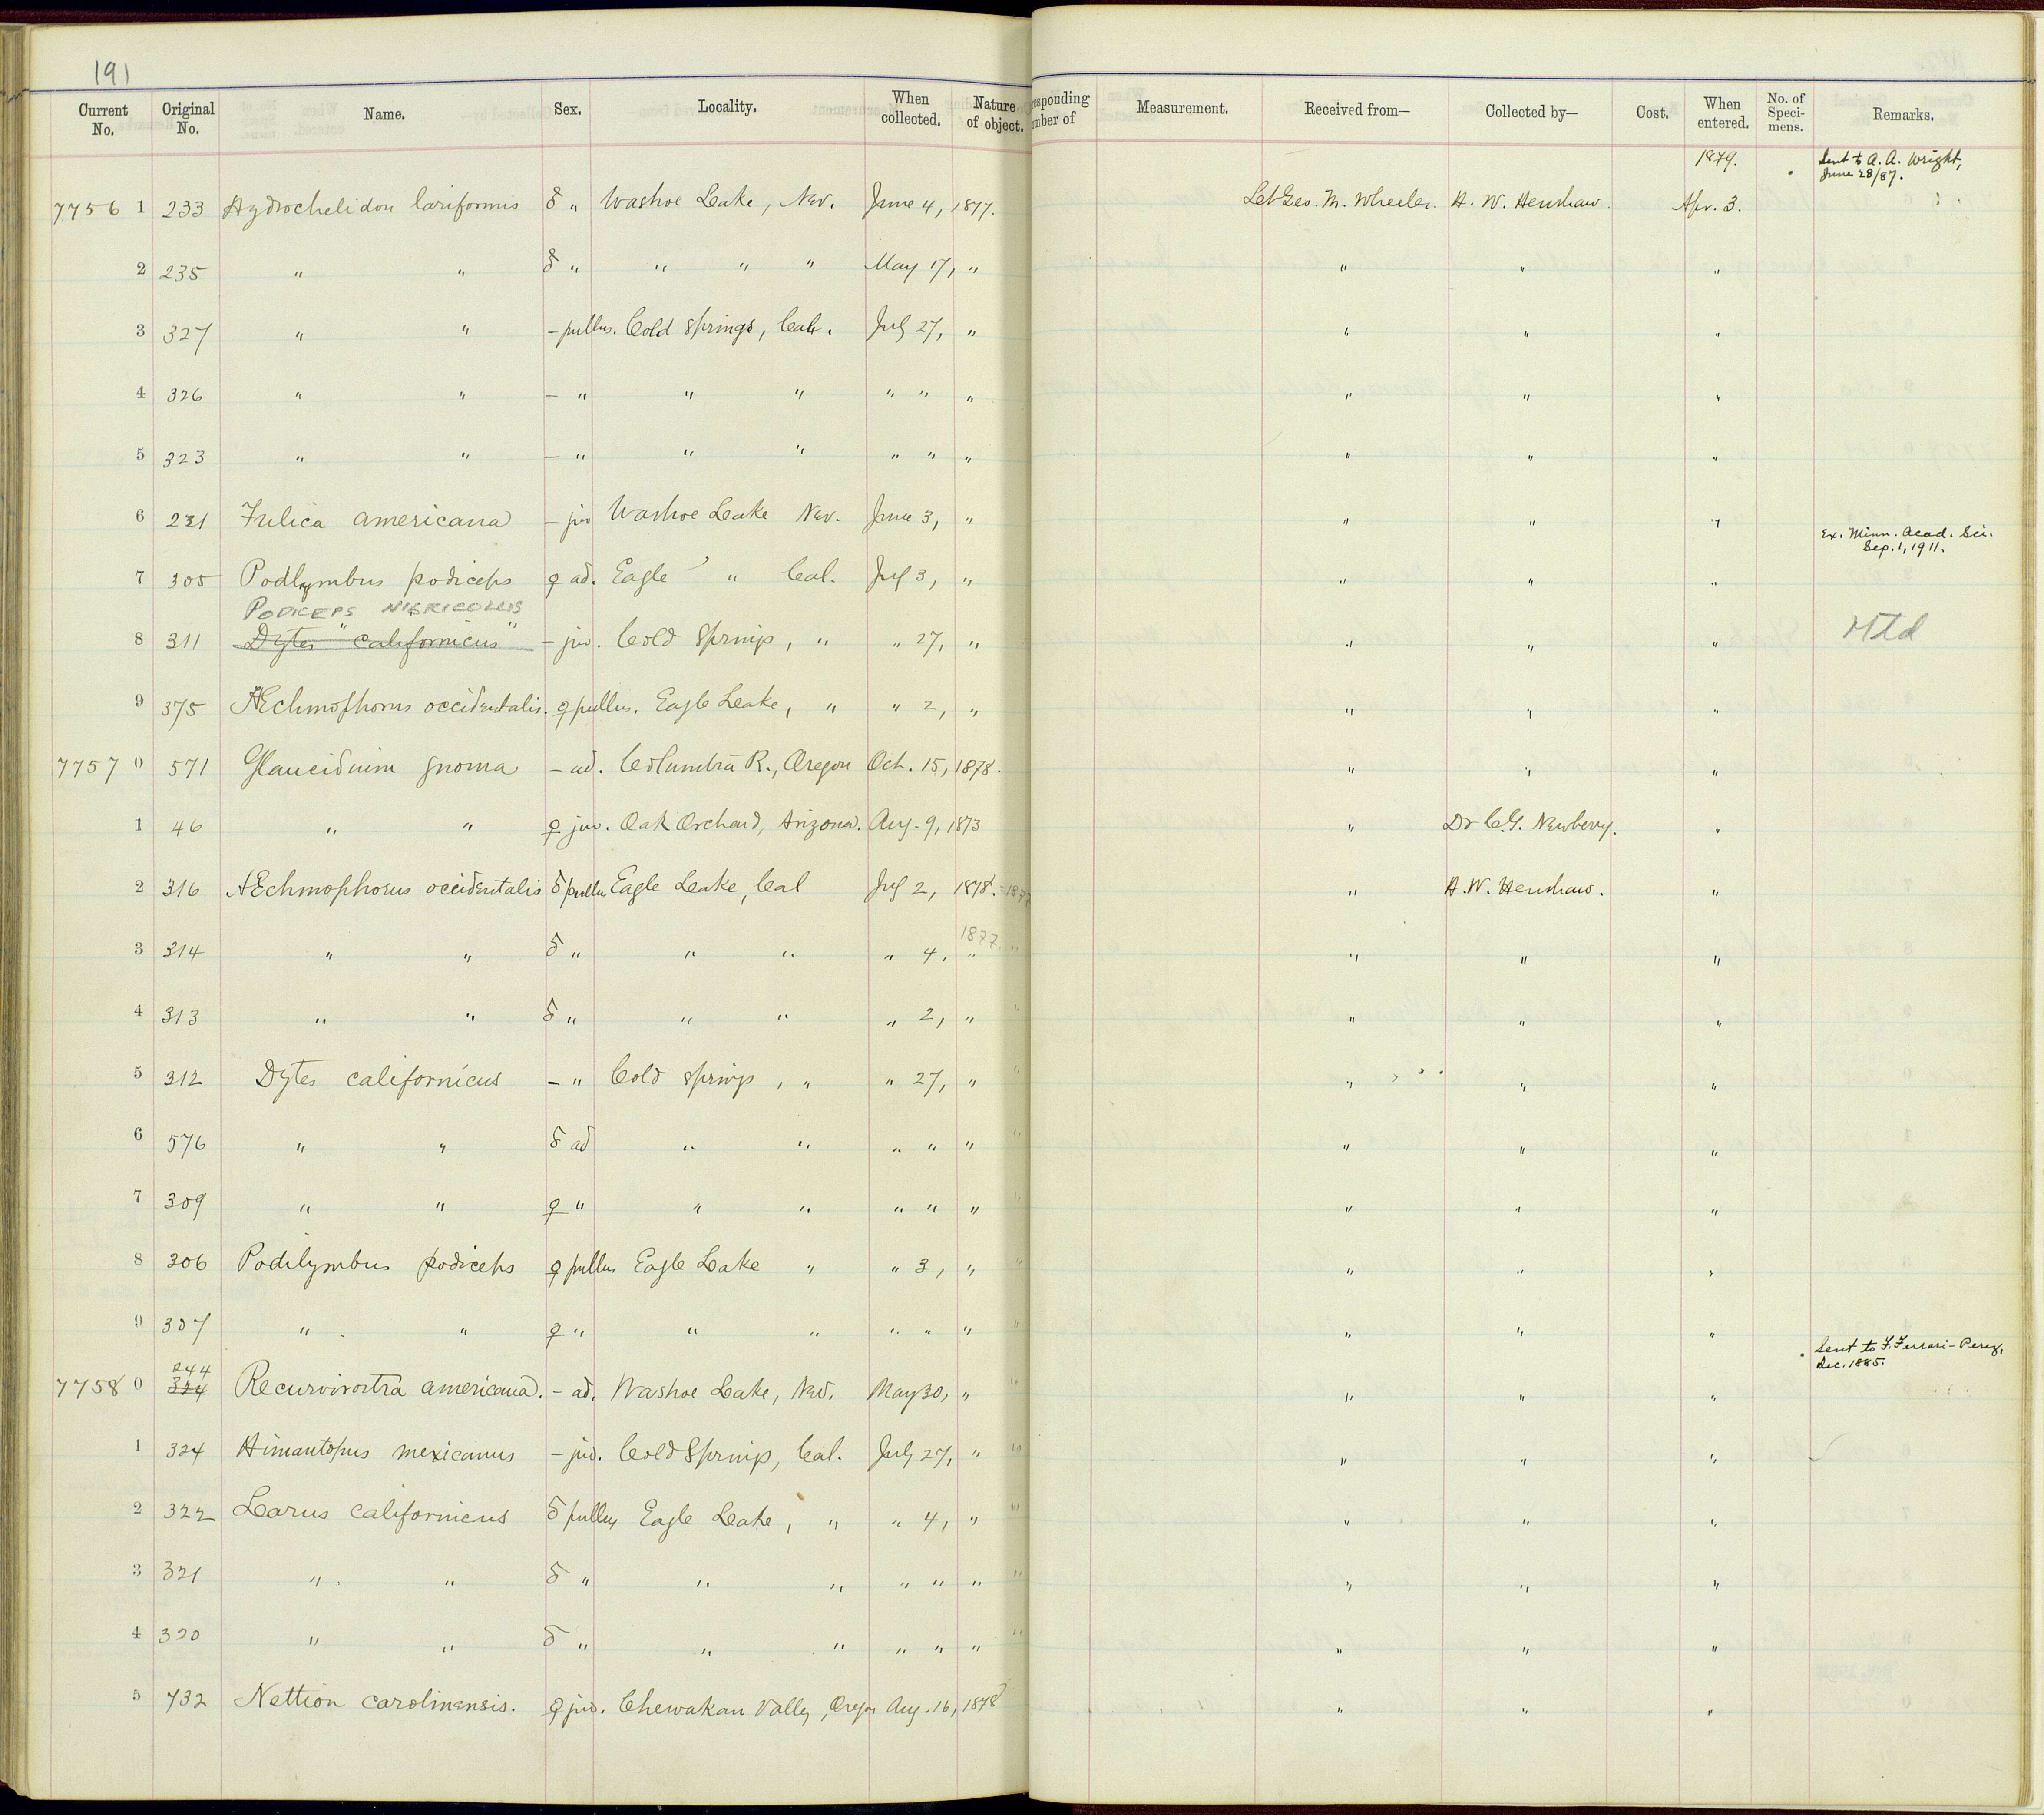 191
Current No. Original No. Name. Sex. Locality. When collected. Nature of object. responding mber of Measurement. Received from— Collected by— Cost. When entered. No. of Speci- mens. Remarks.
1879. Sent to A. A. Wright, June 28/87.
7756 1 233 Hydrochelidon lariformis ♂ " Washoe Lake, Nev. June 4, 1877. Lt Geo. M. Wheeler. H. W. Henshaw. Apr. 3.
2 235 " " ♂ " " " " May 17, " " " "
3 327 " " - pullus. Cold Springs, Cal. July 27, " " " "
4 326 " " - " " " " " " " " "
5 323 " " - " " " " " " " " "
6 231 Fulica americana - juv Washoe Lake Nev. June 3, " " " "
Ex. Minn. Acad. Sci. Sep. 1, 1911.
7 305 Podlymbus podiceps ♀ ad. Eagle " Cal. July 3, " " " "
PODICEPS NIGRICOLLIS
8 311 Dytes "californicus" - juv. Cold Springs, " " 27, " " " " Mtd
9 375 Æchmophorus occidentalis. ♀ pullus. Eagle Lake, " " 2, " " " "
7757 0 571 Glaucidium gnoma - ad. Columbia R., Oregon Oct. 15, 1878. " " "
1 46 " " ♀ juv. Oak Orchard, Arizona. Aug. 9, 1873 " Dr C.G. Newberry. "
2 316 Æchmophorus occidentalis ♂ pullus Eagle Lake, Cal July 2, 1878. =1877 " H. W. Henshaw. "
1877.
3 314 " " ♂ " " " " 4, " " " " "
4 313 " " ♂ " " " " 2, " " " " "
5 312 Dytes californicus - " Cold Springs, " " 27, " " " " "
6 576 " " ♂ ad " " " " " " " " "
7 309 " " ♀ " " " " " " " " " "
8 306 Podilymbus podiceps ♀ pullus Eagle Lake " " 3, " " " " "
9 307 " " ♀ " " " " " " " " " "
Sent to F. Ferrari-Perez, Dec. 1885.
244
7758 0 324 Recurvirostra americana. - ad. Washoe Lake, Nev. May 30, " " " " "
1 324 Himantopus mexicanus - juv. Cold Springs, Cal. July 27, " " " " "
2 322 Larus californicus ♂ pullus Eagle Lake, " " 4, " " " " "
3 321 " " ♂ " " " " " " " " " "
4 320 " " ♂ " " " " " " " " " "
5 732 Nettion carolinensis. ♀ juv. Chewakan Valley, Oregon Aug. 16, 1878 " " "